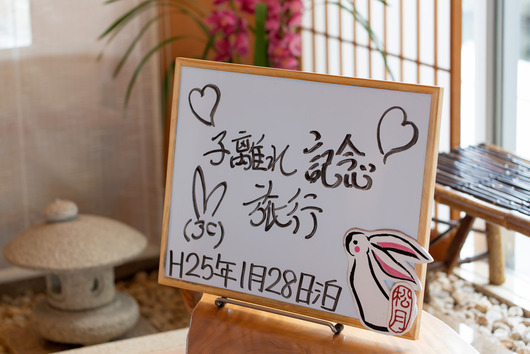 子離れ 記念
旅行
H25年1月28日泊
松月